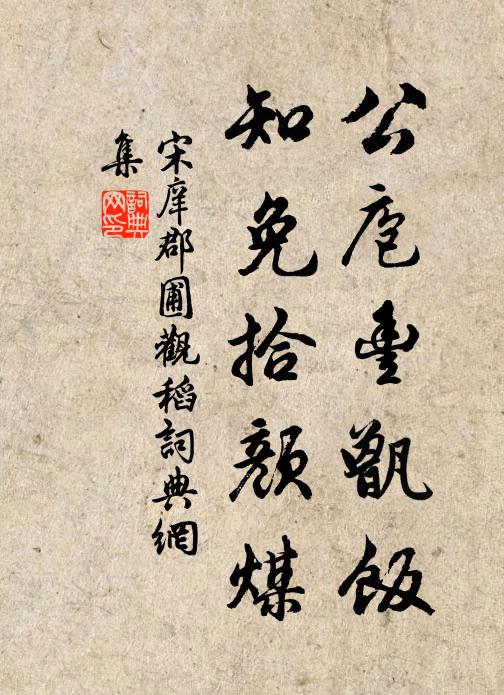 公庖豊甑飯
知免拾顔煤
宋庠郡圃觀稻詞典網
集
詞典
网印